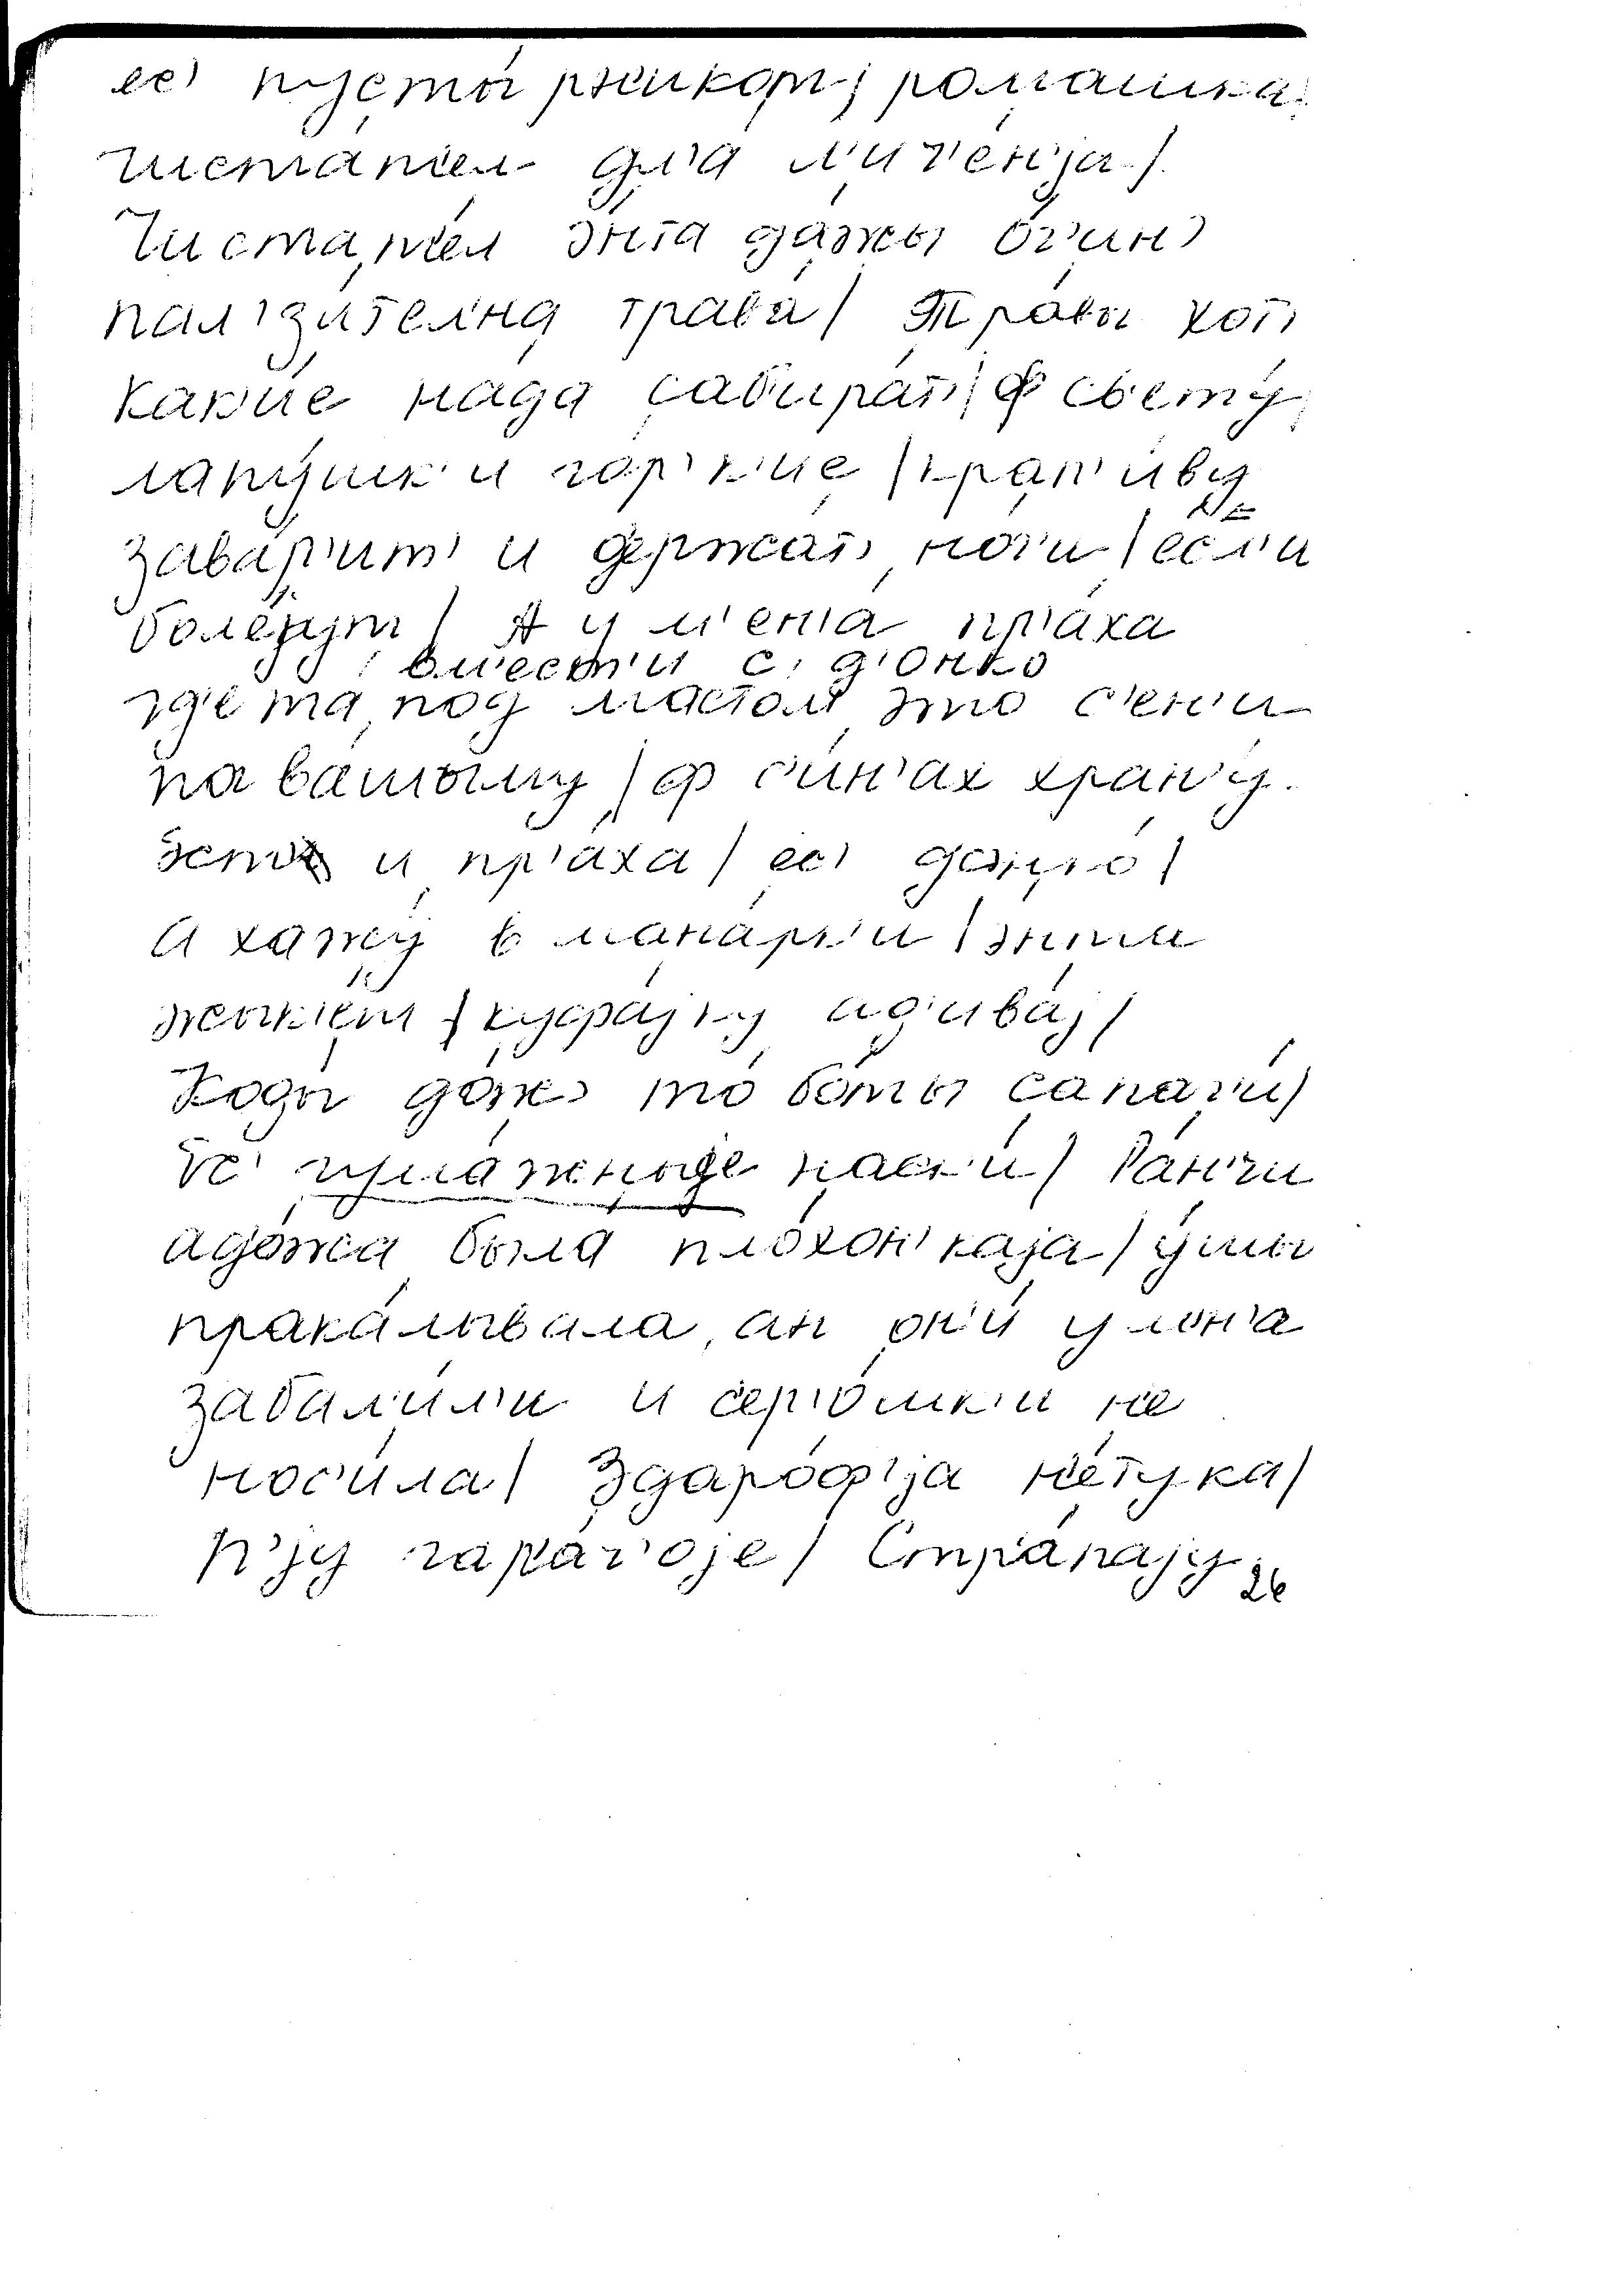 ес' пусты́рн'икори; ромашка;
чистат'ел дл'а л'ич'ен'jа /
Чистат'е́л э́нта да́жы о́ч'ин'
пал'зи́тел'на трава́ / Тра́вы хот'
как'и́е нада сабира́т' / ф с'вету́,
лапу́шк'и гор'к'ие / крап'и́ву
завар'и́т' и держа́т' но́г'и / е́сл'и не
боле́jут / А у м'ен'а́ пр'а́ха
вм'ест'и с д'о́нко
гд'е та под мастом, э́то с'ен'и
па ва́шъму / ф с'ин'а́х хран'у́.
и пр'а́ха / ес' донцо́ /
А хажу́ в манарк'и / з'име
жык'е́т / куфа́jку ад'ива́j /
Коды́ дож' то бо́ты сапаг'и́ /
то паск'и́ / Ра́н'чи
адёжа была пло́хон'каjа / у́шы
прака́лывала, ан он'и́ у мен'а
забал'е́л'и и сер'о́шк'и не
нос'и́ла / Здаро́ф'jа не́тука /
п'jу гар'а́ч'оjе / Стр'а́паjу
26